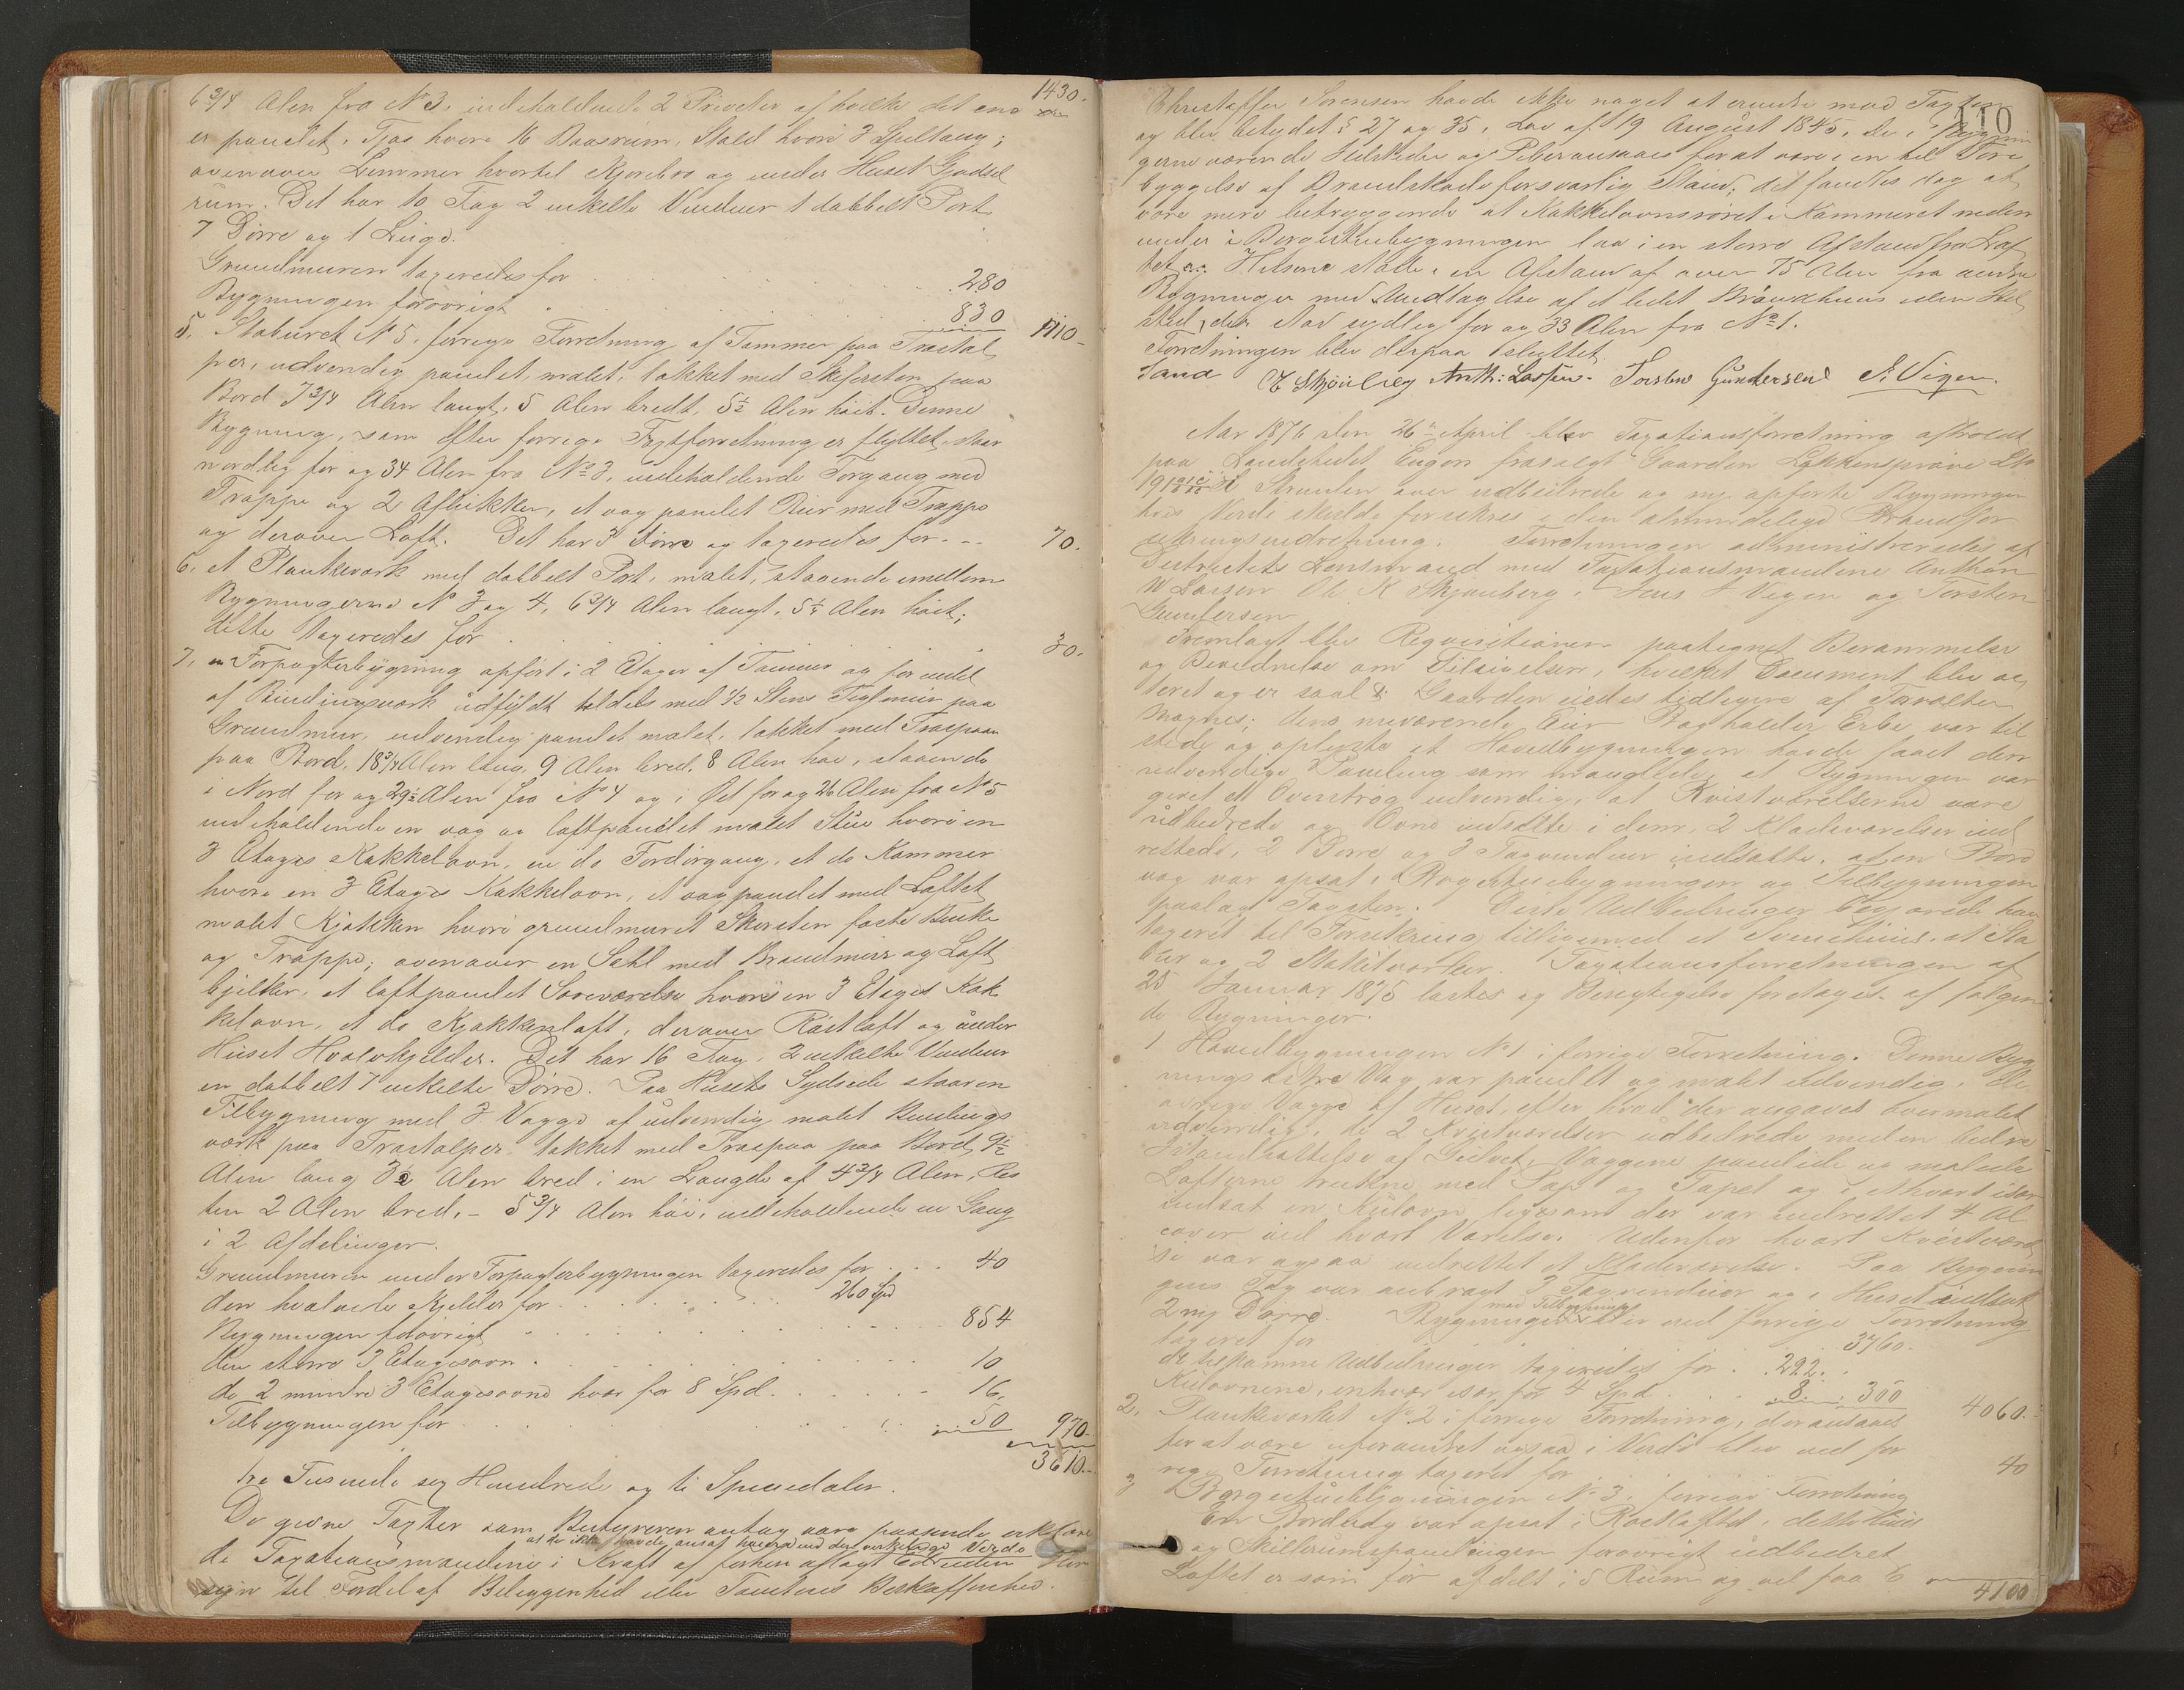 6 3/4 Alen fra No 3, indeholdende 2 Priveter af hvilke det ene 1430.
er panelet, Fjøs hvori 16 Baasrum, Stald hvori 3 Spiltaug;
ovenover Lemmer hvortil Kjørebro og under Huset Gjødsel
rum. Det har 10 Fag 2 enkelte Vinduer 1 dobbelt Port
7 Dørre og 1 Luge.
Grundmuren taxeredes for . . . 280
Bygningen forøvrigt . . . 830 1110
5. Staburet No 5, forrige Forretning af Tømmer paa Træstol
per, udvendig panelet, malet, tækket med Skifersten paa
Bord 7 3/4 Alen langt, 5 Alen bredt, 5 1/2 Alen høit. Denne
Bygning, som efter forrige Taxtforretning er flyttet, staar
nordlig for og 34 Alen fra No 3, indeholdende Forgang med
Trappe og 2 Aflukker, et væg panelet Rum med Trappe
og derover Loft. Det har 3 Dørre og taxeredes for - - 70.
6. et Plankeværk med dobbelt Port, malet, staaende imellem
Bygningerne No 3 og 4, 6 3/4 Alen langt, 5 1/4 Alen høit;
dette taxeredes for . . . 30.
7. en Forpagterbygning opført i 2 Etager af Tømmer og for endel
af Bindingsværk udfyldt tildels med 1/2 Stens Teglmur paa
Grundmur, udvendig panelet malet, tækket med Træspaan
paa Bord, 18 3/4 Alen lang, 9 Alen bred, 8 Alen høi, staaende
i Nord for og 29 1/2 Alen fra No 4 og i Øst for og 26 Alen fra No 5
indeholdende en væg og loftpanelet malet Stue hvori en
3 Etages Kakkelovn, en do Fordørgang, et do Kammer
hvori en 3 Etages Kakkelovn, et vægpanelet med Loftet
malet Kjøkken hvori grundmuret Skorsten faste Bænke
og Trappe; ovenover en Sahl med Brandmur og Loft
bjelker, et loftpanelet Soveværelse hvori en 3 Etages Kak
kelovn, et do Kjøkkenloft, derover Røstloft og under
Huset Hvælvkjelder. Det har 16 Fag, 2 enkelte Vinduer
en dobbelt 7 enkelte Dørre. Paa Husets Sydside staar en
Tilbygning med 3 Vægge af udvendig malet Bindings
værk paa Træstolper, tækket med Træspaa paa Bord, 9 1/2
Alen lang 3 1/2 Alen bred i en Længde af 4 3/4 Alen, Res
ten 2 Alen bred, - 5 3/4 Alen høi, indeholdende en Gang
i 2 Afdelinger.
Grundmuren under Forpagterbygningen taxeredes for . . . 40
den hvælvede Kjelder for . . . 260 Spd
Bygningen forøvrigt . . . 854
den større 3 Etagesovn . . . 10
de 2 mindre 3 Etagesovne hver for 8 Spd . . . 16.
Tilbygningen for . . . 50 970.
3610.
tre Tusinde sex Hundrede og ti Speciedaler.
De givne Taxter som Bestyreren antog være passende erklære
at de ikke havde ansat høiere end det virkelige Værdi
de Taxationsmændene i Kraft af forhen aflagt Ed uden Hen
syn til Fordel af Beliggenhed eller Tomtens Beskaffenhed.
110
Christoffer Sørensen havde ikke noget at erindre mod Taxten
og blev betydet § 27 og 35, Lov af 19 August 1845. De i Bygnin
gerne værende Ildsteder og Piber ansaaes for at være i en til Fore
byggelse af Brandskade forsvarlig Stand; det fandtes dog at
være mere betryggende at Kakkelovnsrøret i Kammeret neden
under i Borgestuebygningen laa i en større Afstand fra Lof
tet og Husene stode i en Afstand af over 75 Alen fra andre
Bygninger med Undtagelse af et lidet Bryggerhuus uden Ild
sted, der stod sydlig for og 33 Alen fra No 1.
Forretningen blev derpaa sluttet.
Sand O Skjønberg Anth: Larsen. Torsten Gundersen J. Vigen.
Aar 1876 den 26de April blev Taxationsforretning afholdt
paa Landstedet Engen frasolgt Gaarden Løkkensprøve
191 Strømlen over udbedrede og ny opførte Bygninger
hvis Værdi skulde forsikres i den almindelige Brandfor
sikringsindretning. Forretningen administreredes af
Districtets Lensmand med Taxationsmændene Anthon
W Larsen Ole K Skjønberg, Jens J Vigen og Torsten
Gundersen
Fremlagt blev Requisitionen paategnet Berammelse
og Bevidnelse om Tilsigelsen, hvilket Document blev ac
teret og er saal: Gaarden eiedes tidligere af Forvalter
Magnes; dens nuværende Eier Bogholder Erbe var til
stede og oplyste at Hovedbygningen havde faaet den
udvendige Paneling som manglede, at Bygningen var
givet et Overstrøg udvendig, at Kvistværelserne vare
udbedrede og Ovne indsatte i dem, 2 Klædeværelser ind
rettede, 2 Dørre og 3 Tagvinduer indsatte, at en Bord
væg var opsat i Borgestuebygningen og Tilbygningen
paalagt Tagsten. Disse Udbedringer begjærede han
taxeret til Forsikring tilligemed et Svinehuus, et Sta
bur og 2 Stakitværker. Taxationsforretningen af
25 Januar 1875 læstes og Besigtigelse foretages af følgen
de Bygninger.
1 Hovedbygningen No 1 i forrige Forretning. Denne Byg
nings østre Væg var panelet og malet udvendig. De
øvrige Vægge af Huset, efter hvad der angaves overmalet
udvendig, de 2 Kvistværelser udbedrede med en bedre
Istandsættelse af Gulvet, Væggene panelede og malede
Lofterne trukne med Pap og Tapet og i ethvert især
indsat en Kulovn ligesom der var indrettet 4 Al
cover ved hvert Værelse. Udenfor hvert Kvistværel
se var ogsaa indrettet et Klædeværelse. Paa Bygnin
gens Tag var anbragt 3 Tagvinduer og i Huset indsat
med Tilbygning
2 ny Dørre. Bygningen blev ved forrige Forretning
taxeret for 3760.
de bekomne Udbedringer taxeredes for . . 292.
Kulovnene, enhver især for 4 Spd . . . 8. 300 4060.
2. Plankeværket No 2 i forrige Forretning, der ansaaes
for at være uforandret ogsaa i Værdi blev ved for
rige Forretning taxeret for 40
3 Borgestuebygningen No 3 i forrige Forretning
En Bordvæg var opsat i Røstloftet, dette tilli
og Skillerumspanelingen forøvrigt udbedret
Loftet er som før afdelt i 5 Rum og vel faa 6
4100